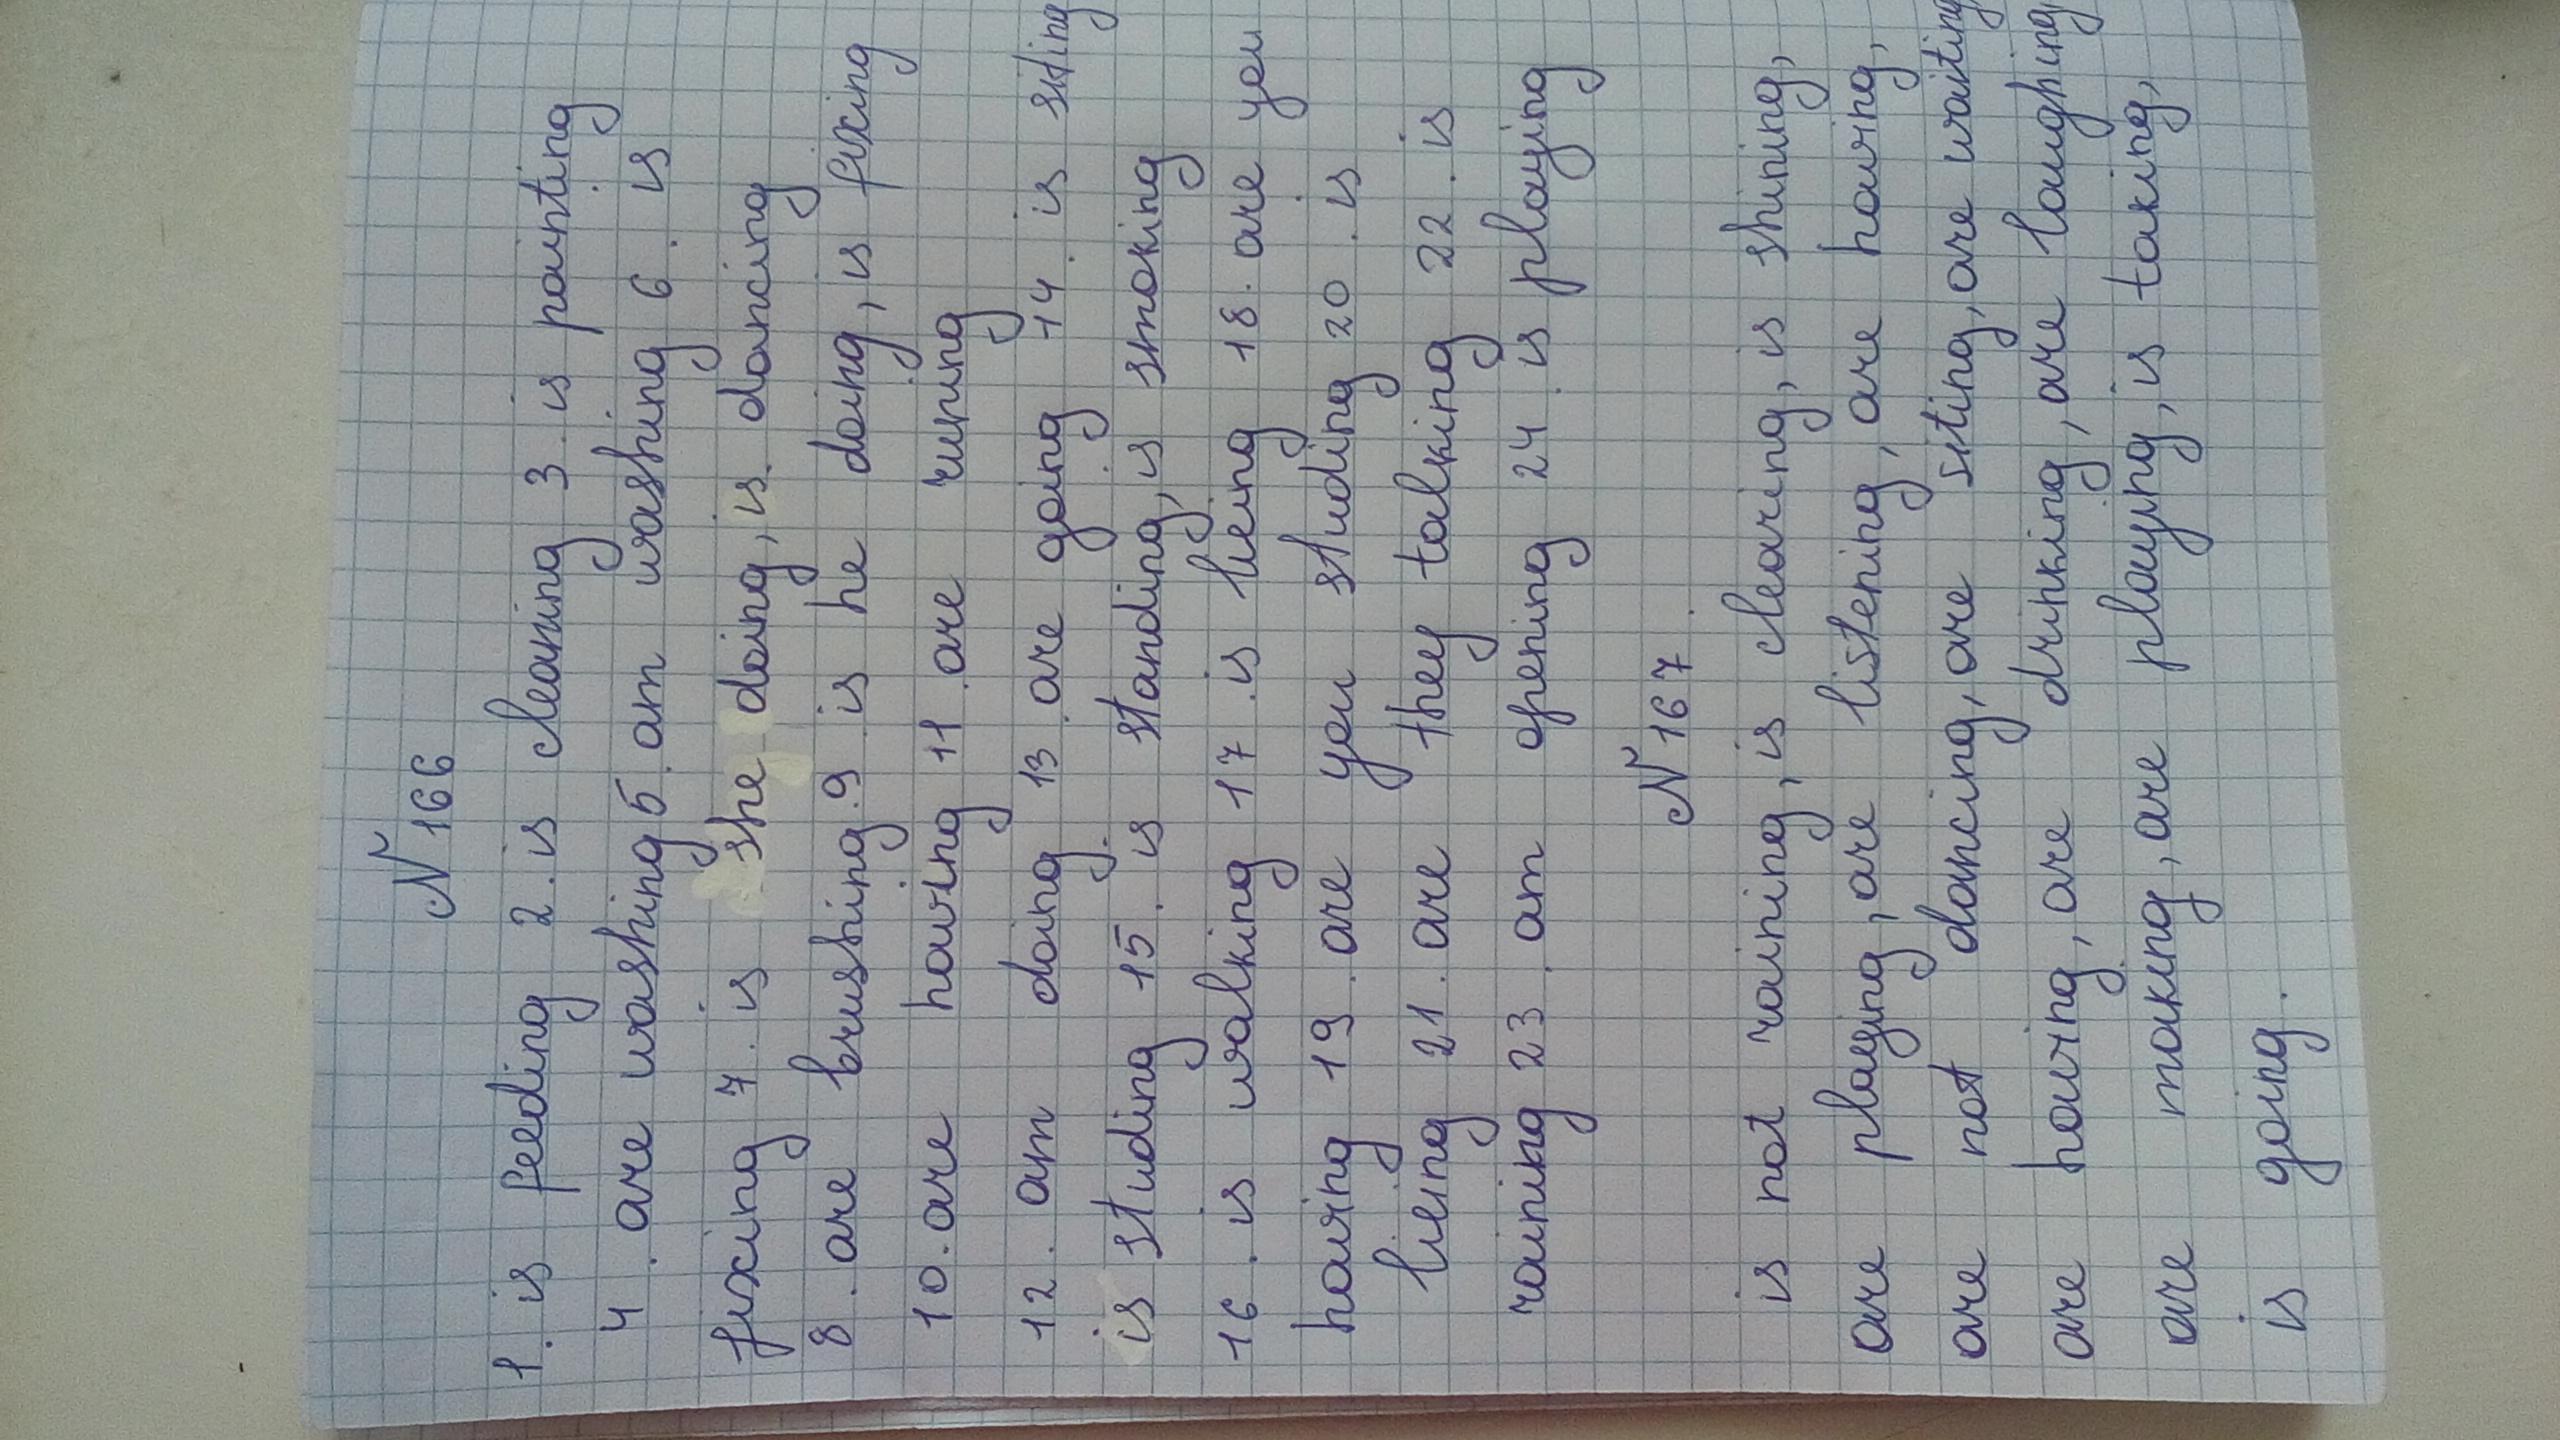 №166
1. is feeding 2. is cleaning 3. is painting
4. are washing 5. am washing 6. is
fixing 7. is she doing, is dancing
8. are brushing 9 is he doing, is fixing
10. are having 11. are runing
12. am doing 13. are going 14. is siting
is studing 15. is standing, is smoking
16. is walking 17. is lieing 18. are you
having 19. are you studing 20. is
lieing 21. are they talking 22. is
raining 23. am opening 24. is playing
№167.
is not raining, is clearing, is shining,
are playing, are listening, are having,
are not dancing, are siting, are waiting
are having, are drinking, are laughing,
are making, are playing, is taking,
is going.